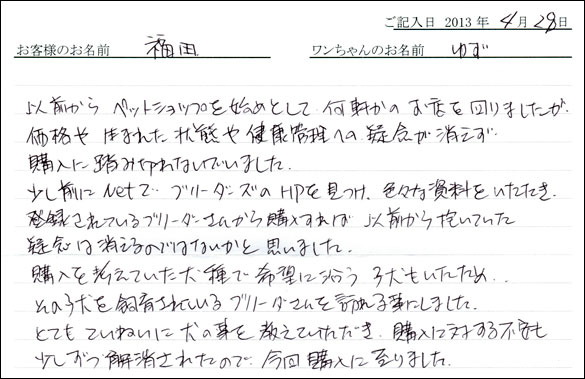 ご記入日 2013 年 4 月 28 日
お客様のお名前 福田 ワンちゃんのお名前 ゆず
以前から ペットショップを始めとして 何軒かの お店を回りましたが、
価格や 生まれた 状態や 健康管理への 疑念が 消えず
購入に踏み切れないでいました。
少し前に Netで ブリーダーズのHPを見つけ、色々な資料をいただき、
登録されているブリーダーさんから購入すれば 以前から抱いていた
疑念は消えるのではないかと思いました。
購入を考えていた犬種で 希望に沿う 子犬もいたため、
その子犬を飼育されている ブリーダーさんを訪れる事にしました。
とても ていねいに 犬の事を 教えていただき、購入に対する不安も
少しずつ解消されたので、今回購入に至りました。